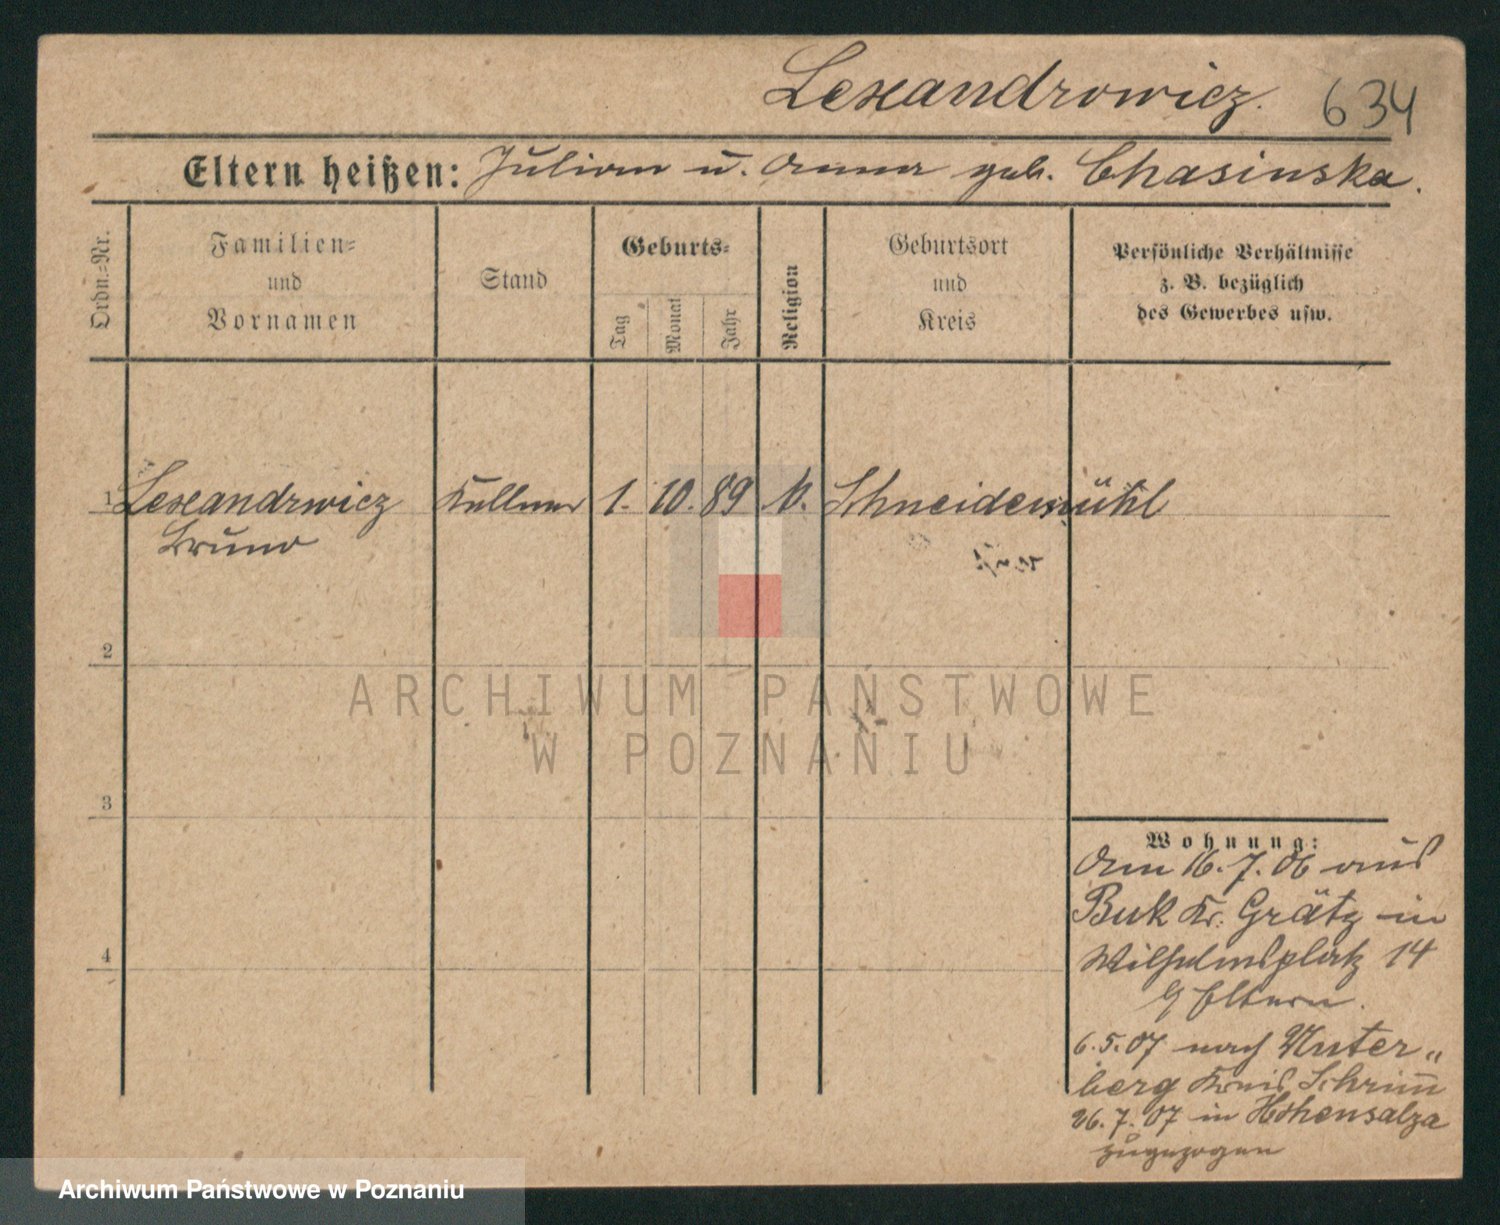 Lexandrowicz. 634
Eltern heißen: Julian u. Anna geb. Chasinska.
Ordn.=Nr.
Familien=
und
Vornamen
Stand
Geburts=
Tag
Monat
Jahr
Religion
Geburtsort
und
Kreis
Persönliche Verhältnisse
z. B. bezüglich
des Gewerbes usw.
1 Lexandrwicz Kellner 1. 10. 89 Schneidemühl
Bruno
2
3
4
Wohnung:
Am 16.7.06 aus
Buk Kr. Grätz in
Wilhelmsplatz 14
Eltern.
6.5.07 nach Unter„
berg Kreis Schrim̅
26.7.07 in Hohensalza
zugezogen
ARCHIWUM PAŃSTWOWE
W POZNANIU
Archiwum Państwowe w Poznaniu